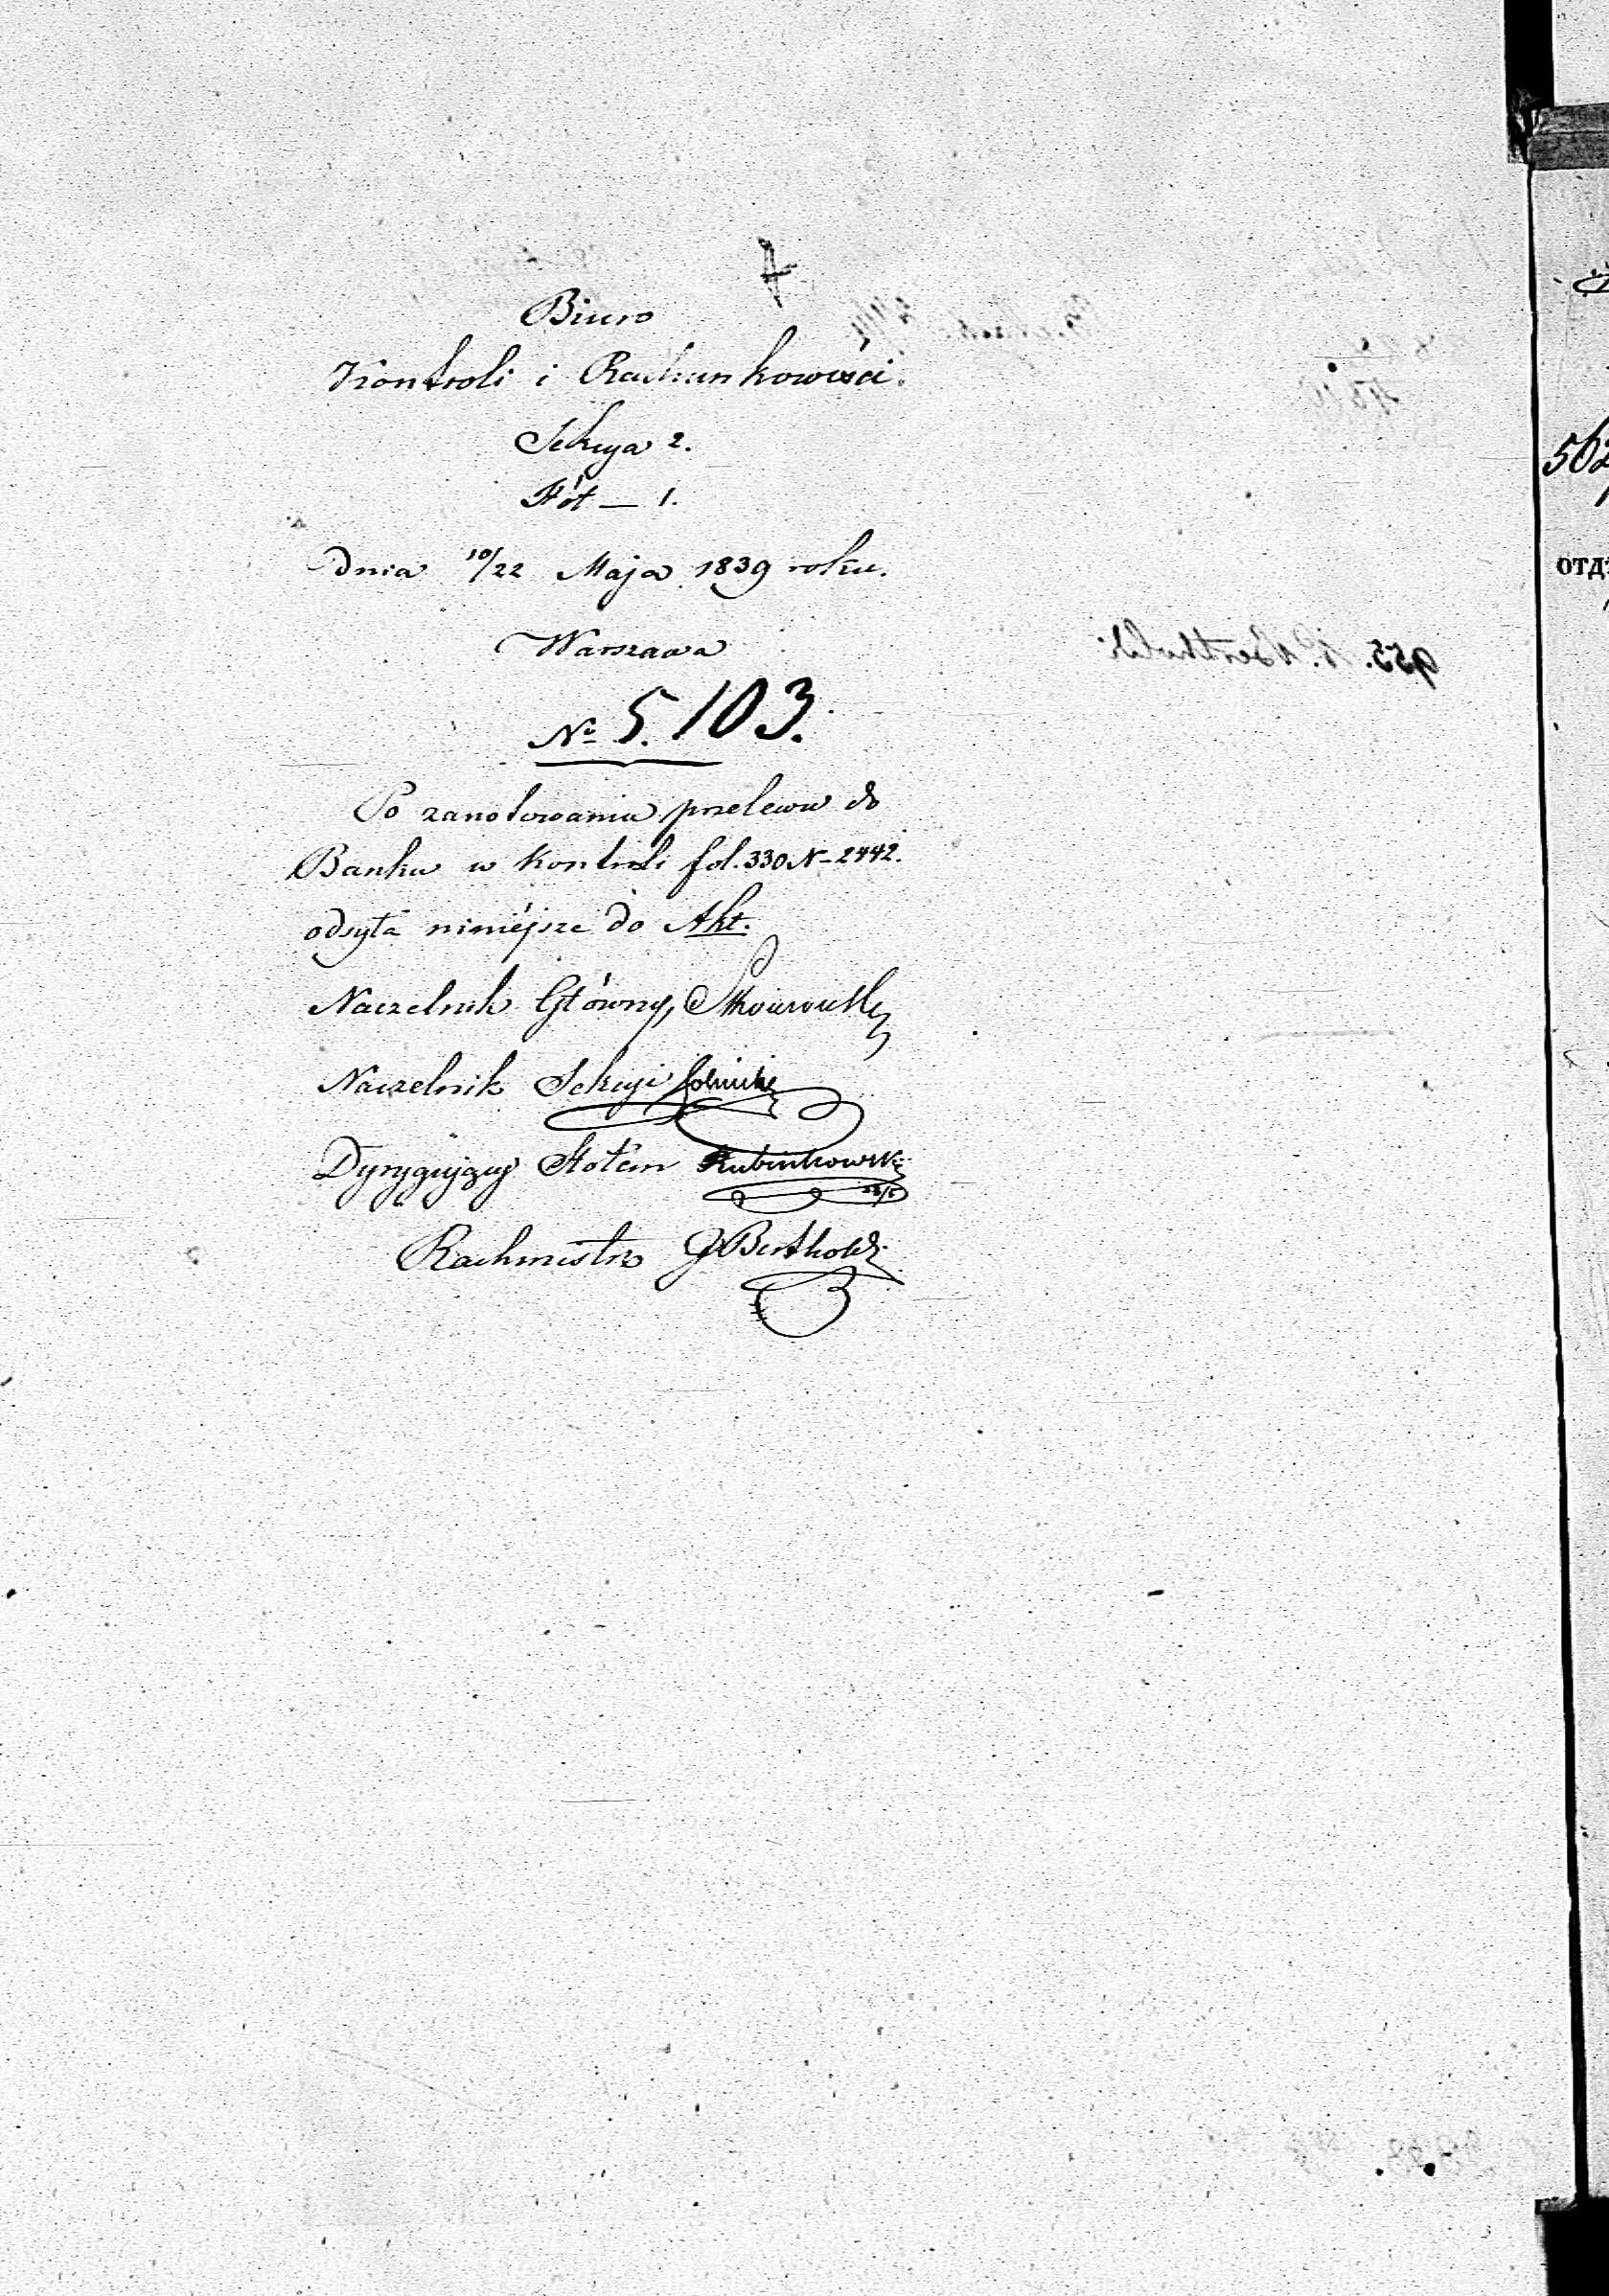 Biuro
Kontroli i Rachunkowości.
Sekcya 2.
Stół — 1.
Dnia 10/22 Maja 1839 roku.
Warszawa
No 5.103.
Po zanotowaniu przelewu do
Banku w Kontroli fol. 330 N- 2442.
odsyła niniéjsze do Akt.
Naczelnik Główny,
Naczelnik Sekcyi
Dyrygujący Stołem Rubinkowski
22/5
Rachmistrz G Berthold
955.
562
отд